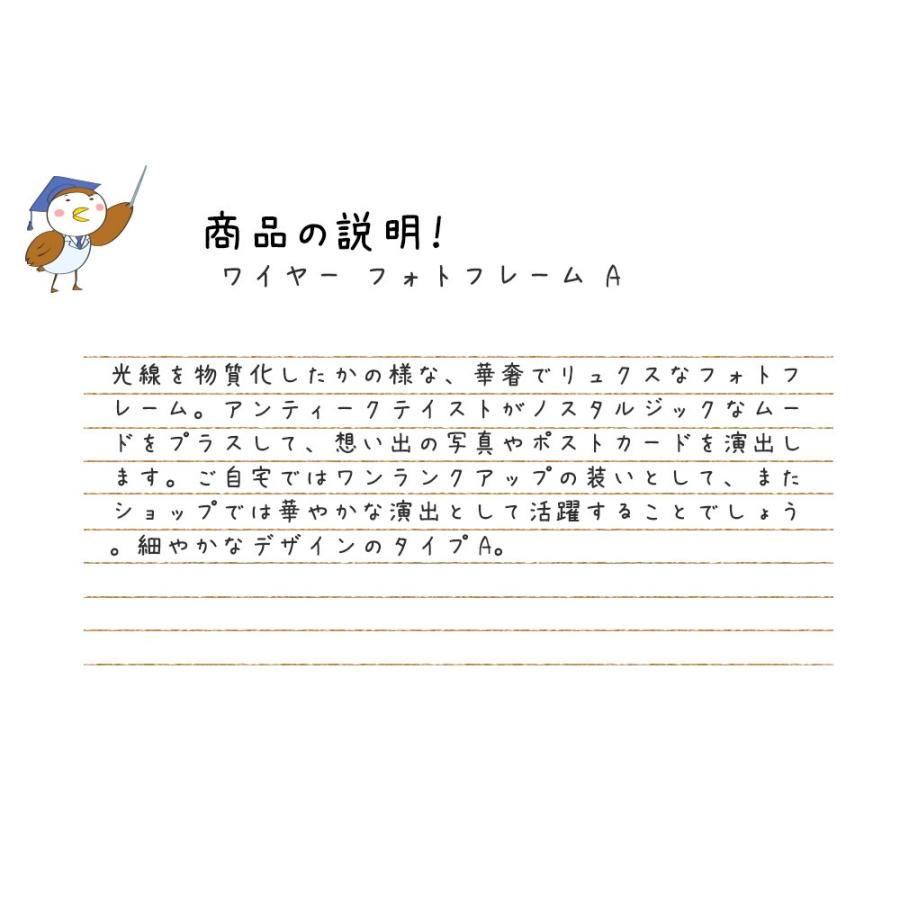 商品の説明!
ワイヤー フォトフレーム A
光線を物質化したかの様な、華奢でリュクスなフォトフ
レーム。アンティークテイストがノスタルジックなムー
ドをプラスして、想い出の写真やポストカードを演出し
ます。ご自宅ではワンランクアップの装いとして、また
ショップでは華やかな演出として活躍することでしょう
。細やかなデザインのタイプA。